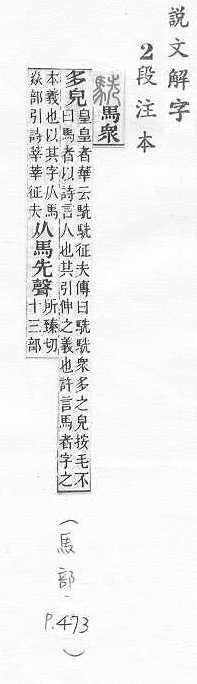 説文解字
2段注本
駪馬衆
多皃皇皇者華云駪駪征夫傳曰駪駪衆多之皃按毛不
曰馬者以詩言人也其引伸之義也許言馬者字之
本義也以其字从馬
焱部引詩莘莘征夫
从馬先聲所臻切
十三部
(馬部, P.473)